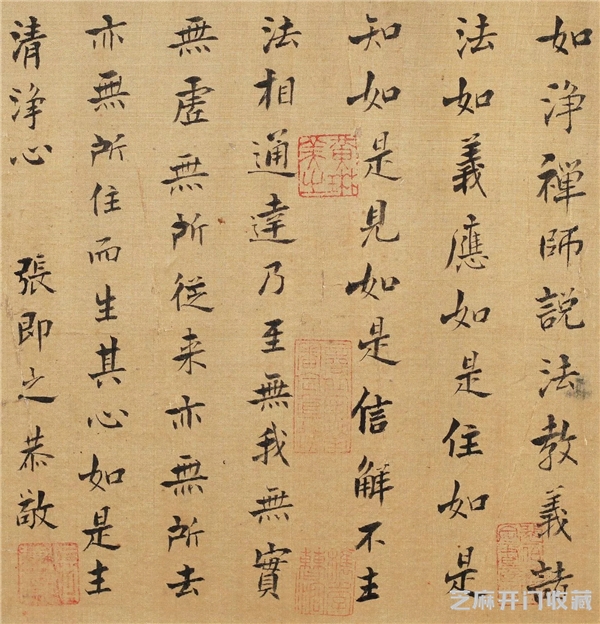 如浄禪師説法教義諸
法如義應如是住如是
知如是見如是信解不生
法相通達乃至無我無實
無虛無所從来亦無所去
亦無所住而生其心如是生
清浄心 張即之恭敬
黄琳美之
芝麻开门收藏